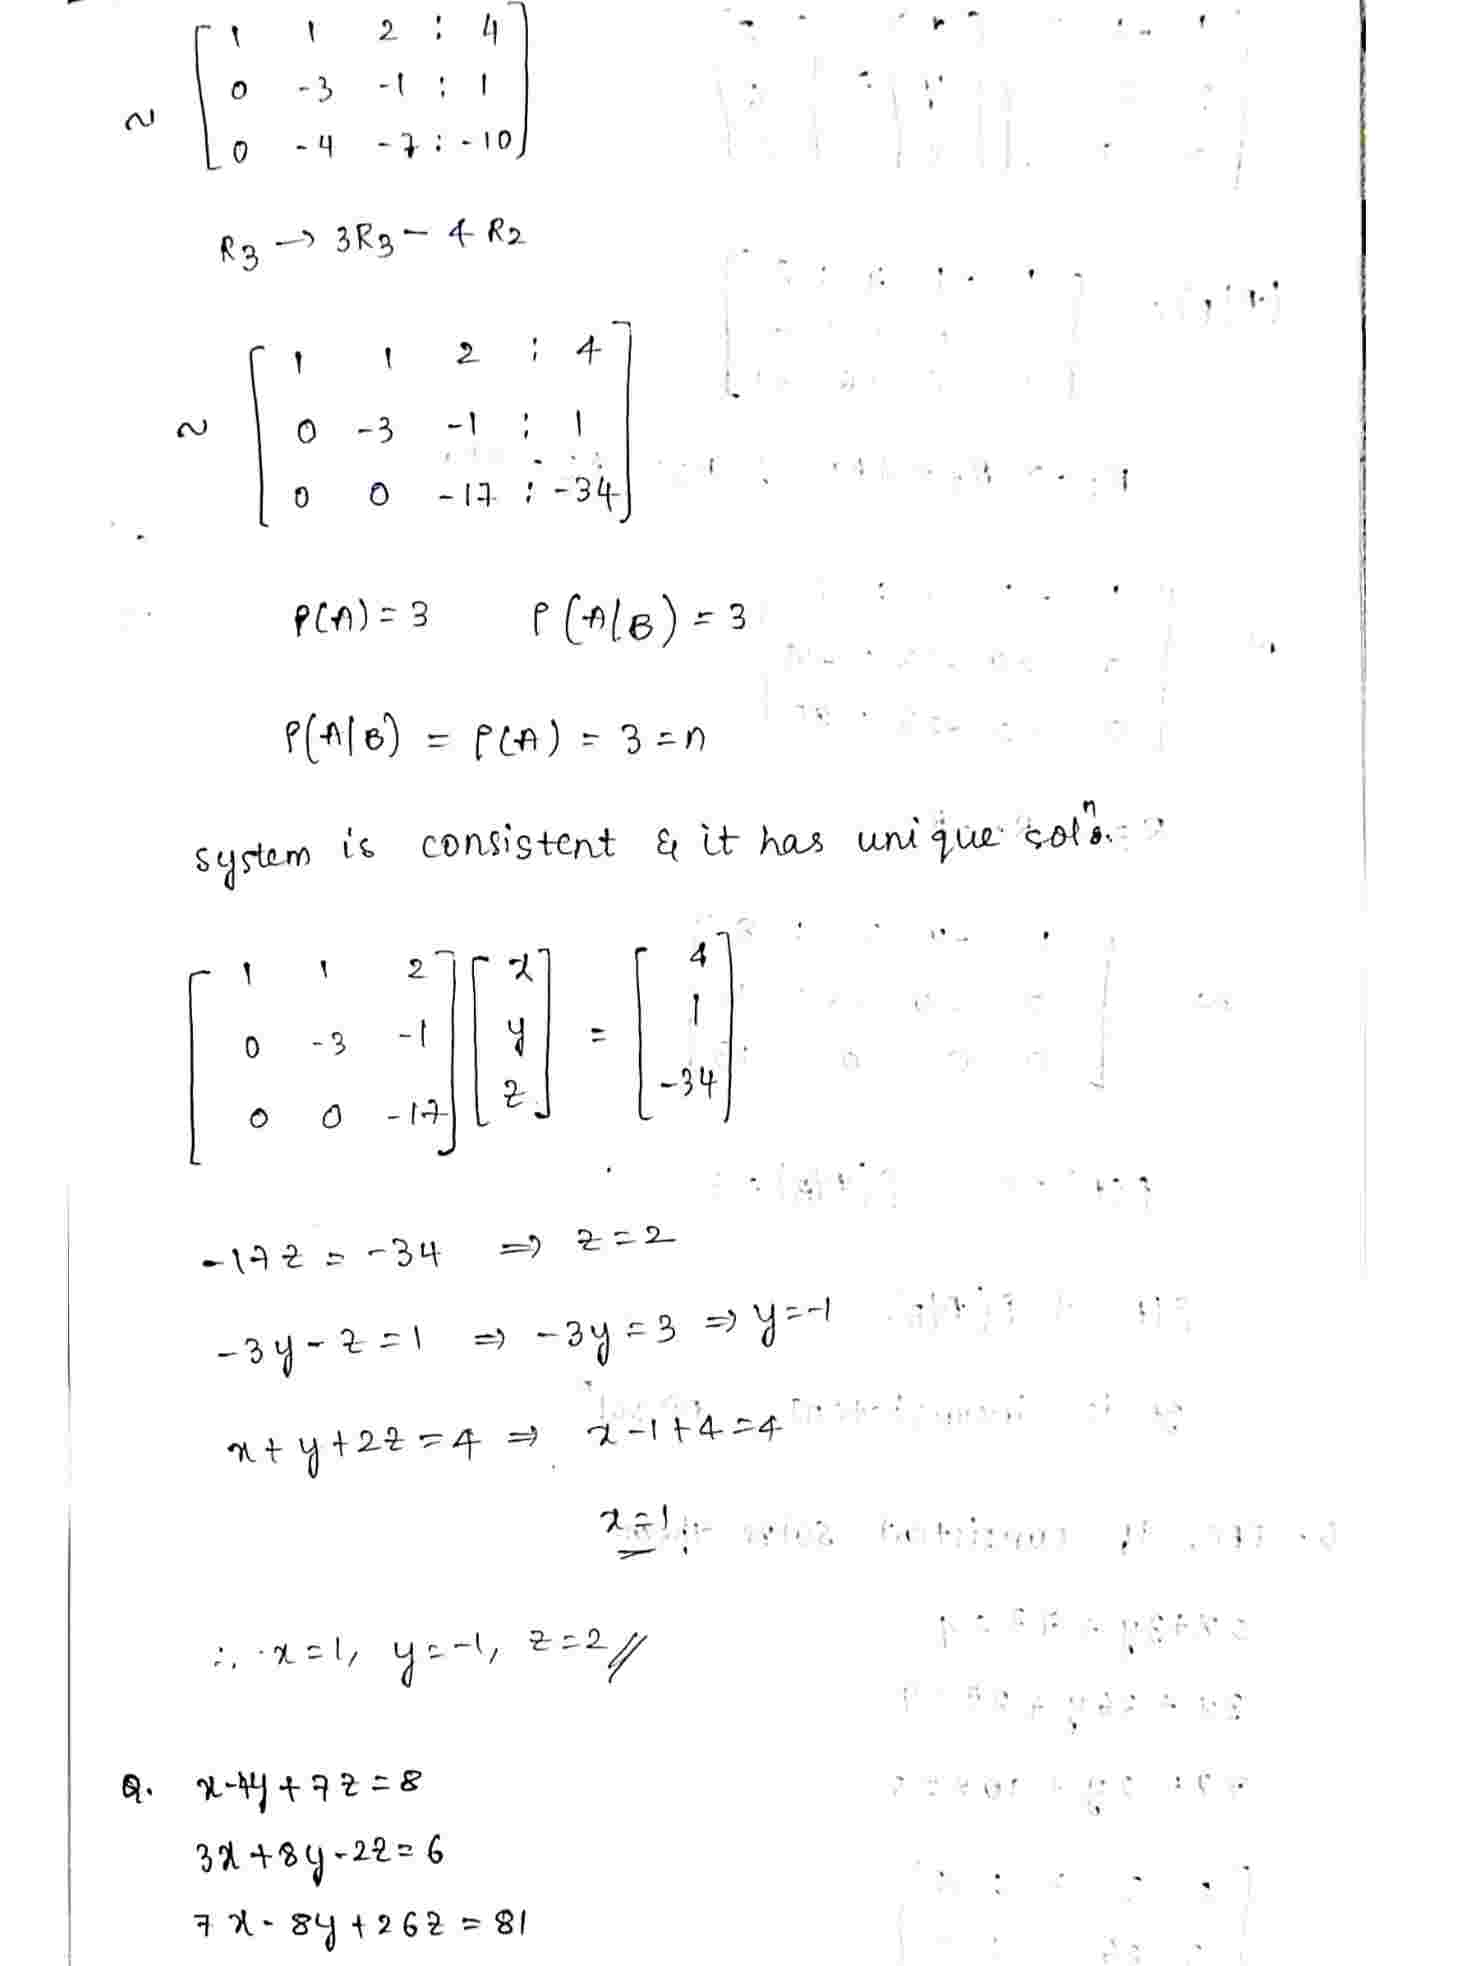 ~ [ 1 1 2 : 4
0 -3 -1 : 1
0 -4 -7 : -10 ]
R3 → 3R3 - 4 R2
~ [ 1 1 2 : 4
0 -3 -1 : 1
0 0 -17 : -34 ]
ρ(A) = 3 ρ(A|B) = 3
ρ(A|B) = ρ(A) = 3 = n
system is consistent & it has unique solⁿ.
[ 1 1 2 ] [ x ] = [ 4 ]
[ 0 -3 -1 ] [ y ] [ 1 ]
[ 0 0 -17 ] [ z ] [ -34 ]
-17z = -34 ⇒ z = 2
-3y - z = 1 ⇒ -3y = 3 ⇒ y = -1
x + y + 2z = 4 ⇒ x - 1 + 4 = 4
x = 1
∴ x = 1, y = -1, z = 2 //
Q. x - 4y + 7z = 8
3x + 8y - 2z = 6
7x - 8y + 26z = 81